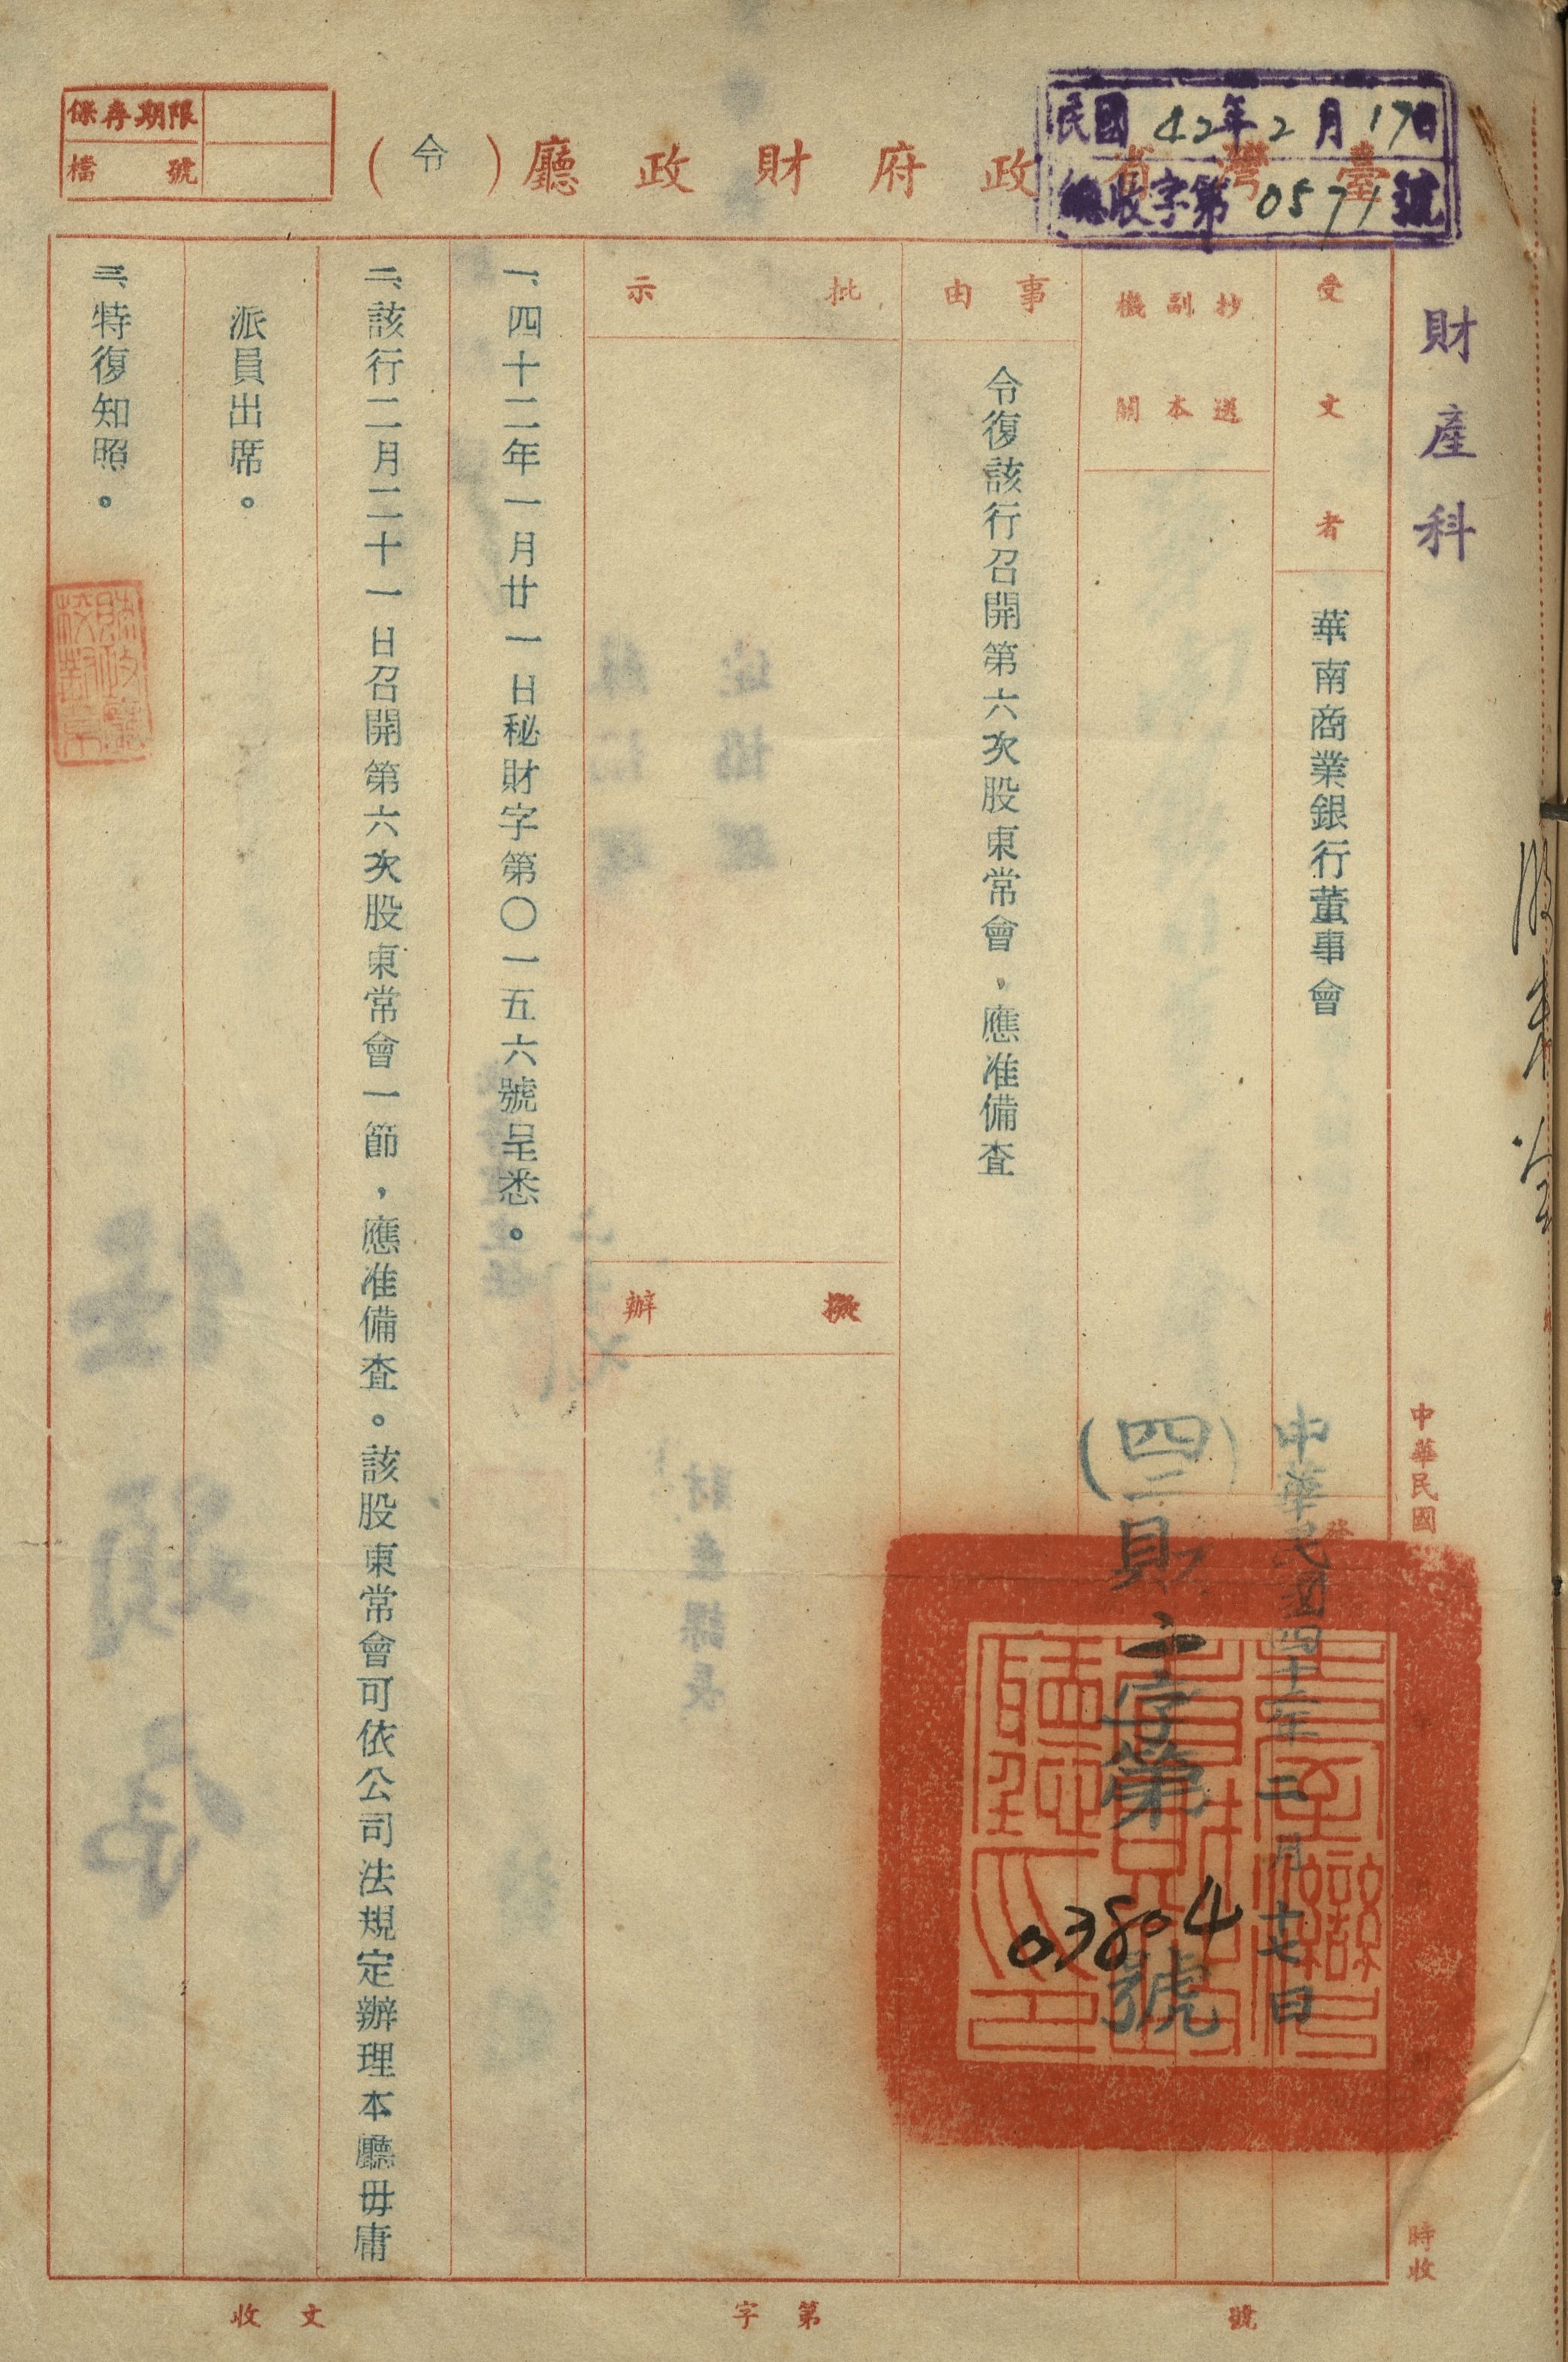 民國42年2月17日
總收字第0571號
臺灣省政府財政廳（令）
保存期限
檔號
財產科
受文者
華南商業銀行董事會
抄副機
送本關
事由
令復該行召開第六次股東常會，應准備查
批示
擬辦
中華民國
時收
發
中華民國四十二年二月十七日
（四二）財二字第03804號
一、四十二年一月廿一日秘財字第〇一五六號呈悉。
二、該行二月二十一日召開第六次股東常會一節，應准備查。該股東常會可依公司法規定辦理本廳毋庸
派員出席。
三、特復知照。
收文
字第
號